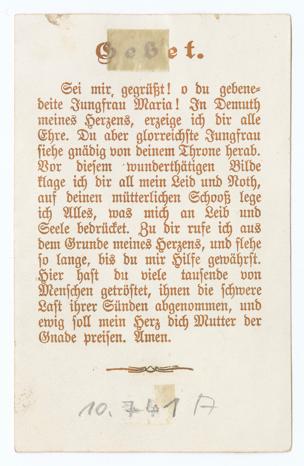 Gebet.
Sei mir, gegrüßt! o du gebene-
deite Jungfrau Maria! In Demuth
meines Herzens, erzeige ich dir alle
Ehre. Du aber glorreichste Jungfrau
siehe gnädig von deinem Throne herab.
Vor diesem wunderthätigen Bilde
klage ich dir all mein Leid und Noth,
auf deinen mütterlichen Schooß lege
ich Alles, was mich an Leib und
Seele bedrücket. Zu dir rufe ich aus
dem Grunde meines Herzens, und flehe
so lange, bis du mir Hilfe gewährst.
Hier hast du viele tausende von
Menschen getröstet, ihnen die schwere
Last ihrer Sünden abgenommen, und
ewig soll mein Herz dich Mutter der
Gnade preisen. Amen.
10.741 A